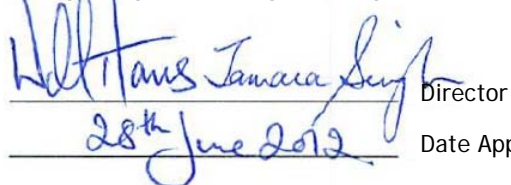 Tamara Singh Director
28th June 2012 Date App